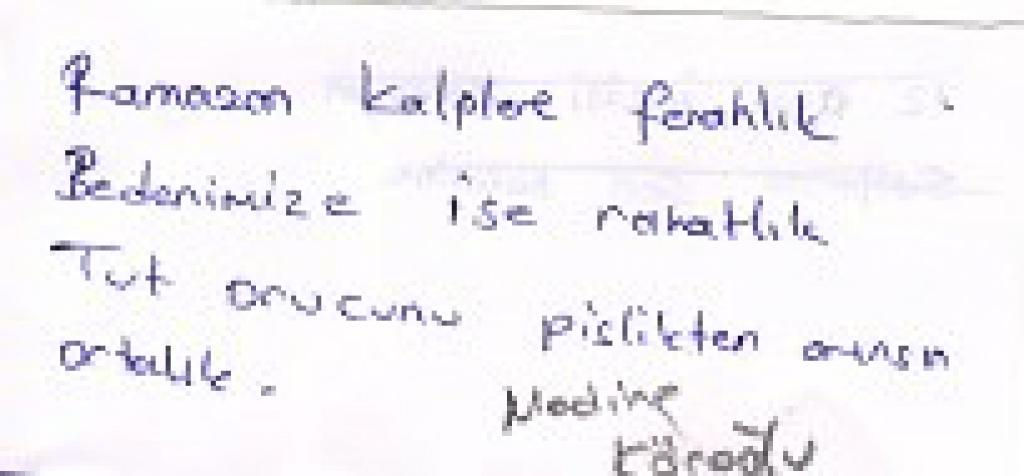 Ramazan kalplere ferahlık
Bedenimize ise rahatlık
Tut orucunu pislikten arınsın
ortalık.
Medine
Köroğlu